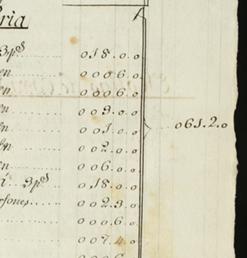 ria
3ps 018.0.0
en 000 6.0
en 000 6.0
en 00 9.0
en 00 1.0
en 00 2.0
en 00 6.0
3ps 018.0.0
rsones 00 2.9.0
000 6.0
00 7.4.0
000 6
061.2.0